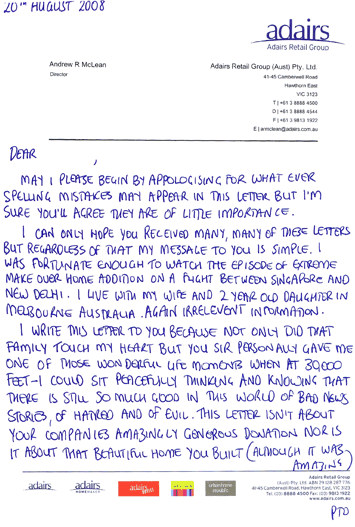 20TH AUGUST 2008
adairs
Adairs Retail Group
Andrew R McLean
Director
Adairs Retail Group (Aust) Pty. Ltd.
41-45 Camberwell Road
Hawthorn East
VIC 3123
T | +61 3 8888 4500
D | +61 3 8888 4544
F | +61 3 9813 1922
E | armclean@adairs.com.au
DEAR ,
MAY I PLEASE BEGIN BY APPOLOGISING FOR WHAT EVER
SPELLING MISTAKES MAY APPEAR IN THIS LETTER BUT I'M
SURE YOU'LL AGREE THEY ARE OF LITTLE IMPORTANCE.
I CAN ONLY HOPE YOU RECEIVED MANY, MANY OF THESE LETTERS
BUT REGARDLESS OF THAT MY MESSAGE TO YOU IS SIMPLE. I
WAS FORTUNATE ENOUGH TO WATCH THE EPISODE OF EXTREME
MAKE OVER HOME ADDITION ON A FLIGHT BETWEEN SINGAPORE AND
NEW DELHI. I LIVE WITH MY WIFE AND 2 YEAR OLD DAUGHTER IN
MELBOURNE AUSTRALIA. AGAIN IRRELEVENT INFORMATION.
I WRITE THIS LETTER TO YOU BECAUSE NOT ONLY DID THAT
FAMILY TOUCH MY HEART BUT YOU SIR PERSONALLY GAVE ME
ONE OF THOSE WONDERFUL LIFE MOMENTS WHEN AT 39,000
FEET - I COULD SIT PEACEFULLY THINKING AND KNOWING THAT
THERE IS STILL SO MUCH GOOD IN THIS WORLD OF BAD NEWS
STORIES, OF HATRED AND OF EVIL. THIS LETTER ISN'T ABOUT
YOUR COMPANIES AMAZINGLY GENEROUS DONATION NOR IS
IT ABOUT THAT BEAUTIFUL HOME YOU BUILT (ALTHOUGH IT WAS
AMAZING)
adairs
adairs
HOMEMAKER
adairs
kids
urban home
republic
Adairs Retail Group
(Aust) Pty. Ltd.
41-45 Camberwell Road, Hawthorn East, VIC 3123
Tel: (03) 8888 4500 Fax: (03) 9813 1922
www.adairs.com.au
PTO